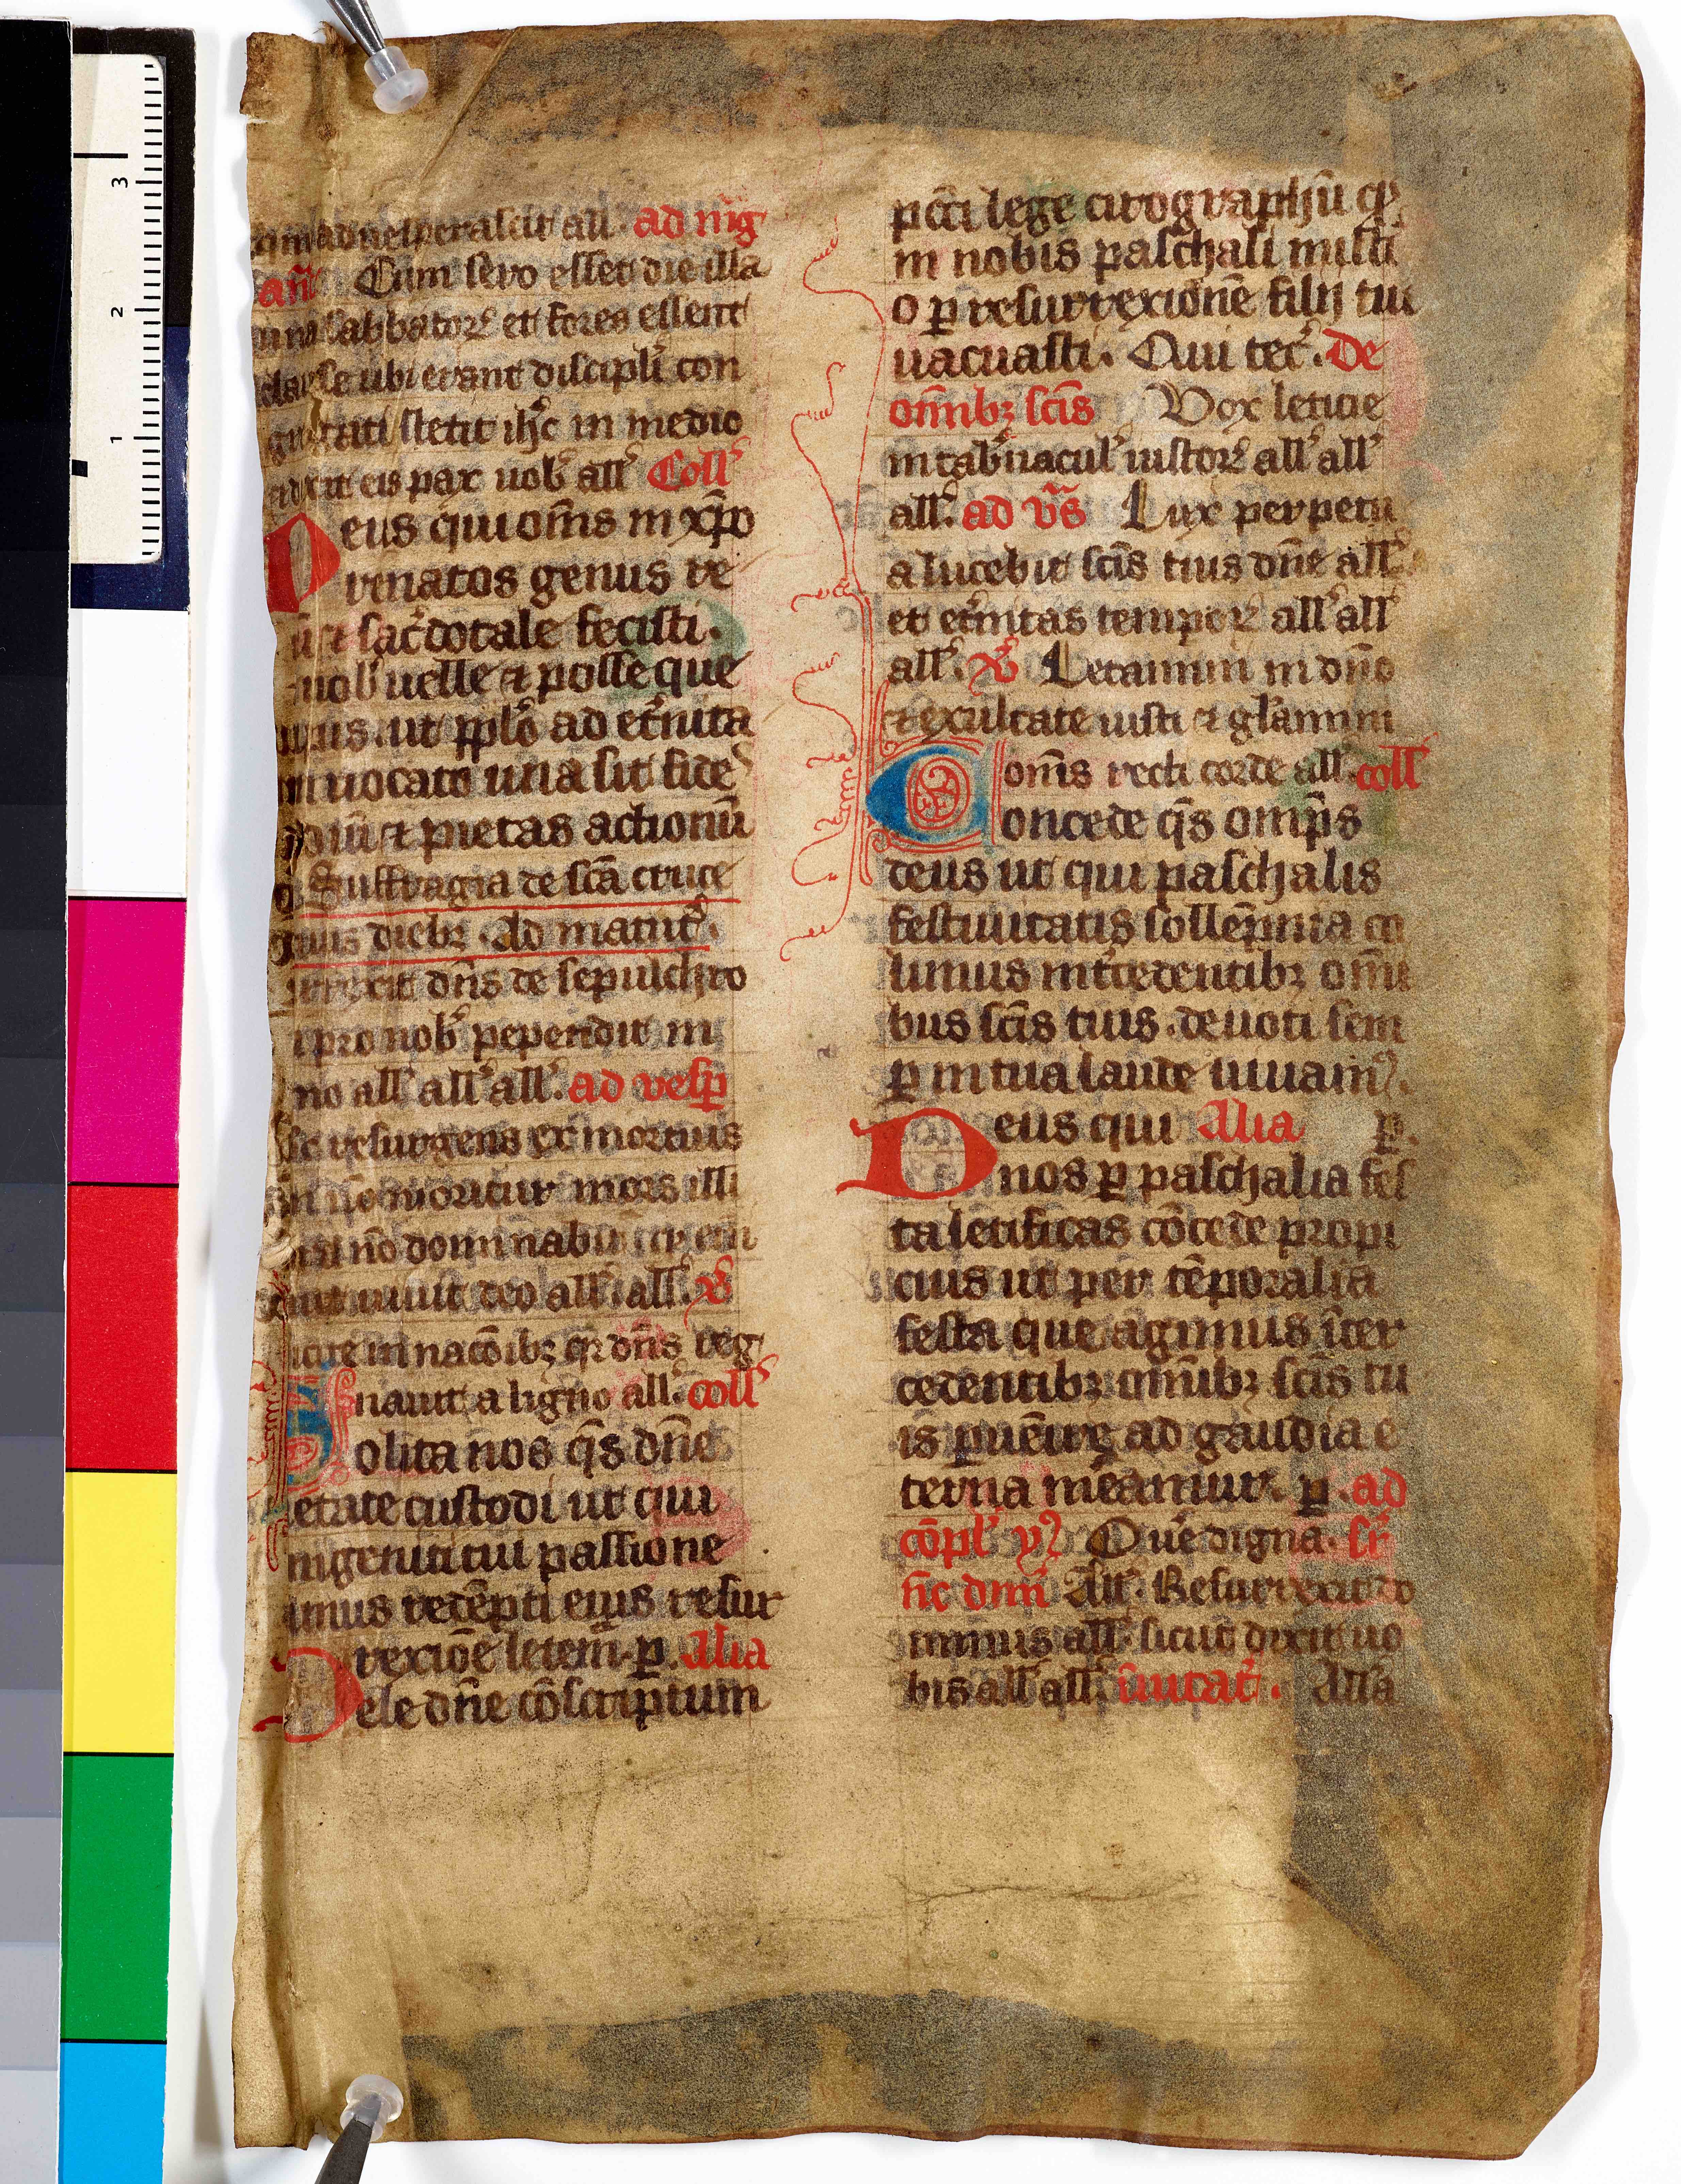 ad uesperascit all. ad mg̃
an̄ Cum sero esset die illa
una sabbatoꝝ et fores essent
clause ubi erant discipli᷒ con
gregati stetit ihc̄ in medio
et dixit eis pax uob᷒ all᷒ Coll᷒
Deus qui om̄s in xp̄o
renatos genus re
giū ⁊ sac᷒dotale fecisti.
da nob᷒ uelle ⁊ posse que
ut pplo᷒ ad et᷒nita
tem uocato una sit fide᷒
⁊ pietas actionū
Suffragia de sc̄a cruce
diebꝫ. Ad matut᷒.
Surrexit dn̄s de sepulchro
qui pro nob᷒ pependit in
ligno all᷒ all᷒ all᷒. ad vesp̄
resurgens ex mortuis
iam nō moritur mors illi
ultra nō dominabitur
uiuit deo all᷒ all᷒. v᷒
Dicite in nacōibꝫ qꝛ dn̄s reg
nauit a ligno all᷒. coll᷒
Solita nos q̄s dn̄e
pietate custodi ut qui
unigeniti tui passione
sumus redēpti eius resur
rexiōe letem᷒. ꝑ. Alia
Dele dn̄e cōscriptum
pcc̄i lege cirographū qꝫ
in nobis paschali mist᷒i
o ꝑ resurrexionē filij tui
uacuasti. Qui tec᷒. De
om̄ibꝫ sc̄is Vox leticie
in tab᷒nacul᷒ iustoꝝ all᷒ all᷒
all᷒. ad v̄s Lux perpetu
a lucebit sc̄is tuis dn̄e all᷒
et et᷒nitas tempoꝝ all᷒ all᷒
all᷒. v᷒ Letamini in dn̄o
⁊ exultate iusti ⁊ gl̄amini
om̄s recti corde all᷒. coll᷒
Concede q̄s omp̄s
deus ut qui paschalis
festiuitatis sollēpnia co
limus int᷒cedentibꝫ omī
bus sc̄is tuis. deuoti sem
ꝑ in tua laude uiuam᷒.
Deus qui Alia ꝑ.
nos ꝑ paschalia fes
ta letificas cōcede propi
cius ut per tēporalia
festa que agimus īter
cedentibꝫ om̄ibꝫ sc̄is tu
is ꝑuēire ad gaudia e
terna m᷒eamur. ꝑ. ad
cōpl᷒ y᷒ Que digna. sr̄
n̄c dim̄ All᷒. Resurrexit do
minus all᷒ sicut dixit uo
bis all᷒ all᷒. īuitat᷒. Alla